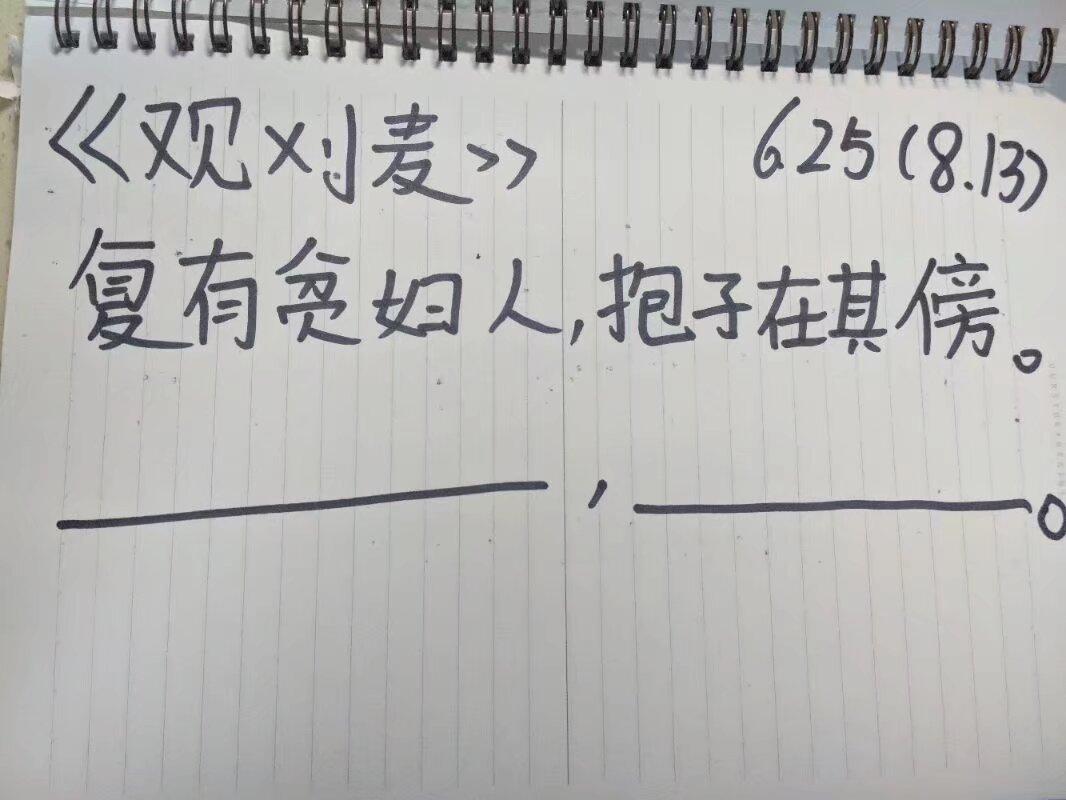 《观刈麦》 6.25(8.13)
复有贫妇人,抱子在其傍。
__________,__________。